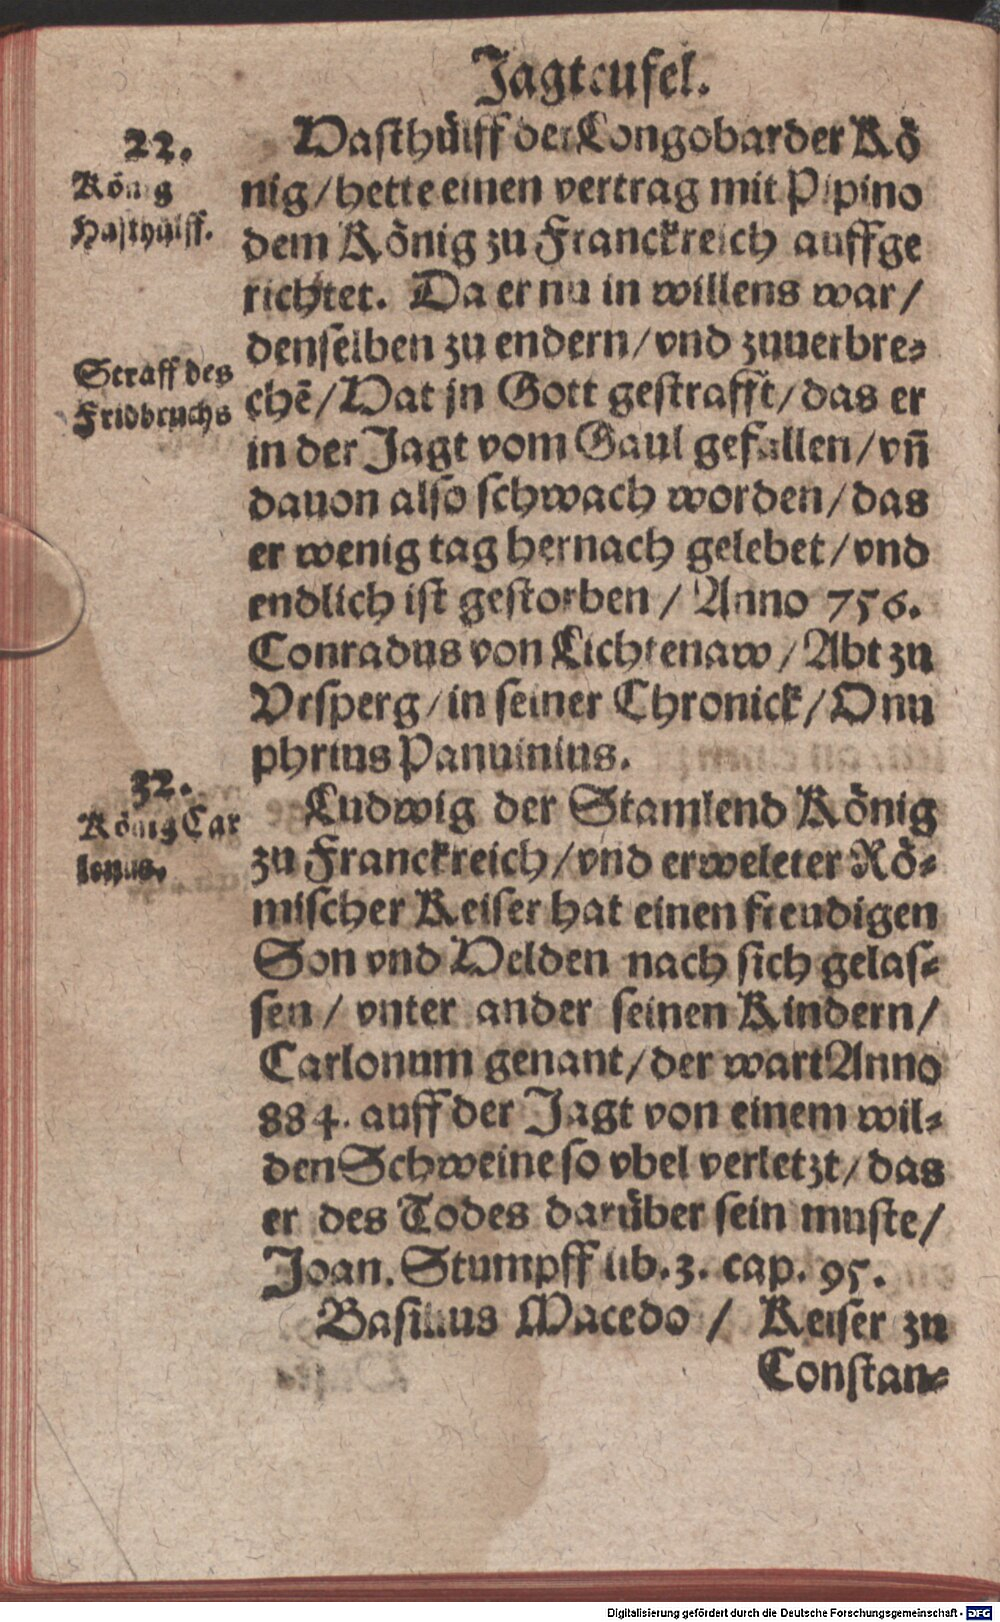 Jagteufel.
22.
König
Hasthülff.
Hasthülff der Longobarder Kö
nig/hette einen vertrag mit Pipino
dem König zu Franckreich auffge
richtet. Da er nu in willens war/
denselben zu endern/vnd zuuerbre-
Straff des
Fridbruchs
chē/Hat jn Gott gestrafft/das er
in der Jagt vom Gaul gefallen/vñ
dauon also schwach worden/das
er wenig tag hernach gelebet/vnd
endlich ist gestorben/Anno 756.
Conradus von Lichtenaw/Abt zu
Vrsperg/in seiner Chronick/Onu
phrius Panuinius.
32.
König Car
lonus.
Ludwig der Stamlend König
zu Franckreich/vnd erweleter Rö-
mischer Keiser hat einen freudigen
Son vnd Helden nach sich gelas-
sen/vnter ander seinen Kindern/
Carlonum genant/der wart Anno
884. auff der Jagt von einem wil-
den Schweine so vbel verletzt/das
er des Todes darüber sein muste/
Joan. Stumpff lib. 3. cap. 95.
Basilius Macedo/Keiser zu
Constan-
Digitalisierung gefördert durch die Deutsche Forschungsgemeinschaft - DFG